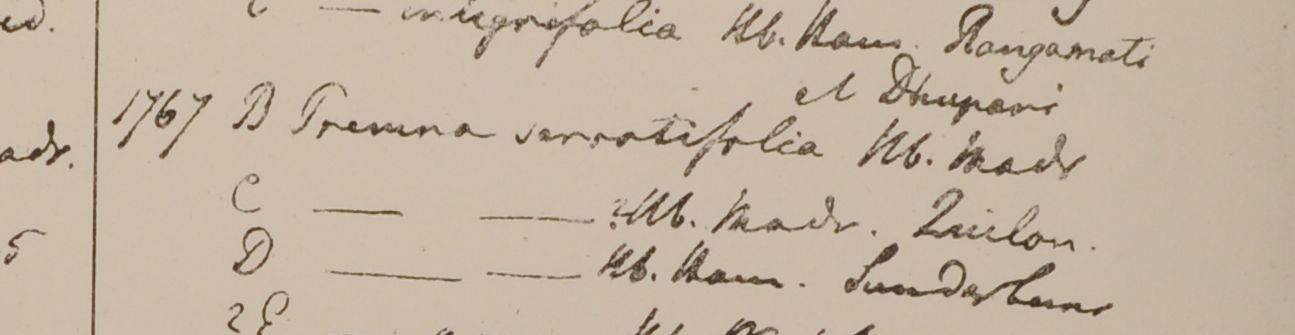 ed.
C — integrifolia Hb. Ham. Rangamati
et Dhupani
1767 B Premna serratifolia Hb. Madr
adr.
C — — ? Hb. Madr. Quilon.
5
D — — Hb. Ham. Sunderbuns
2 E